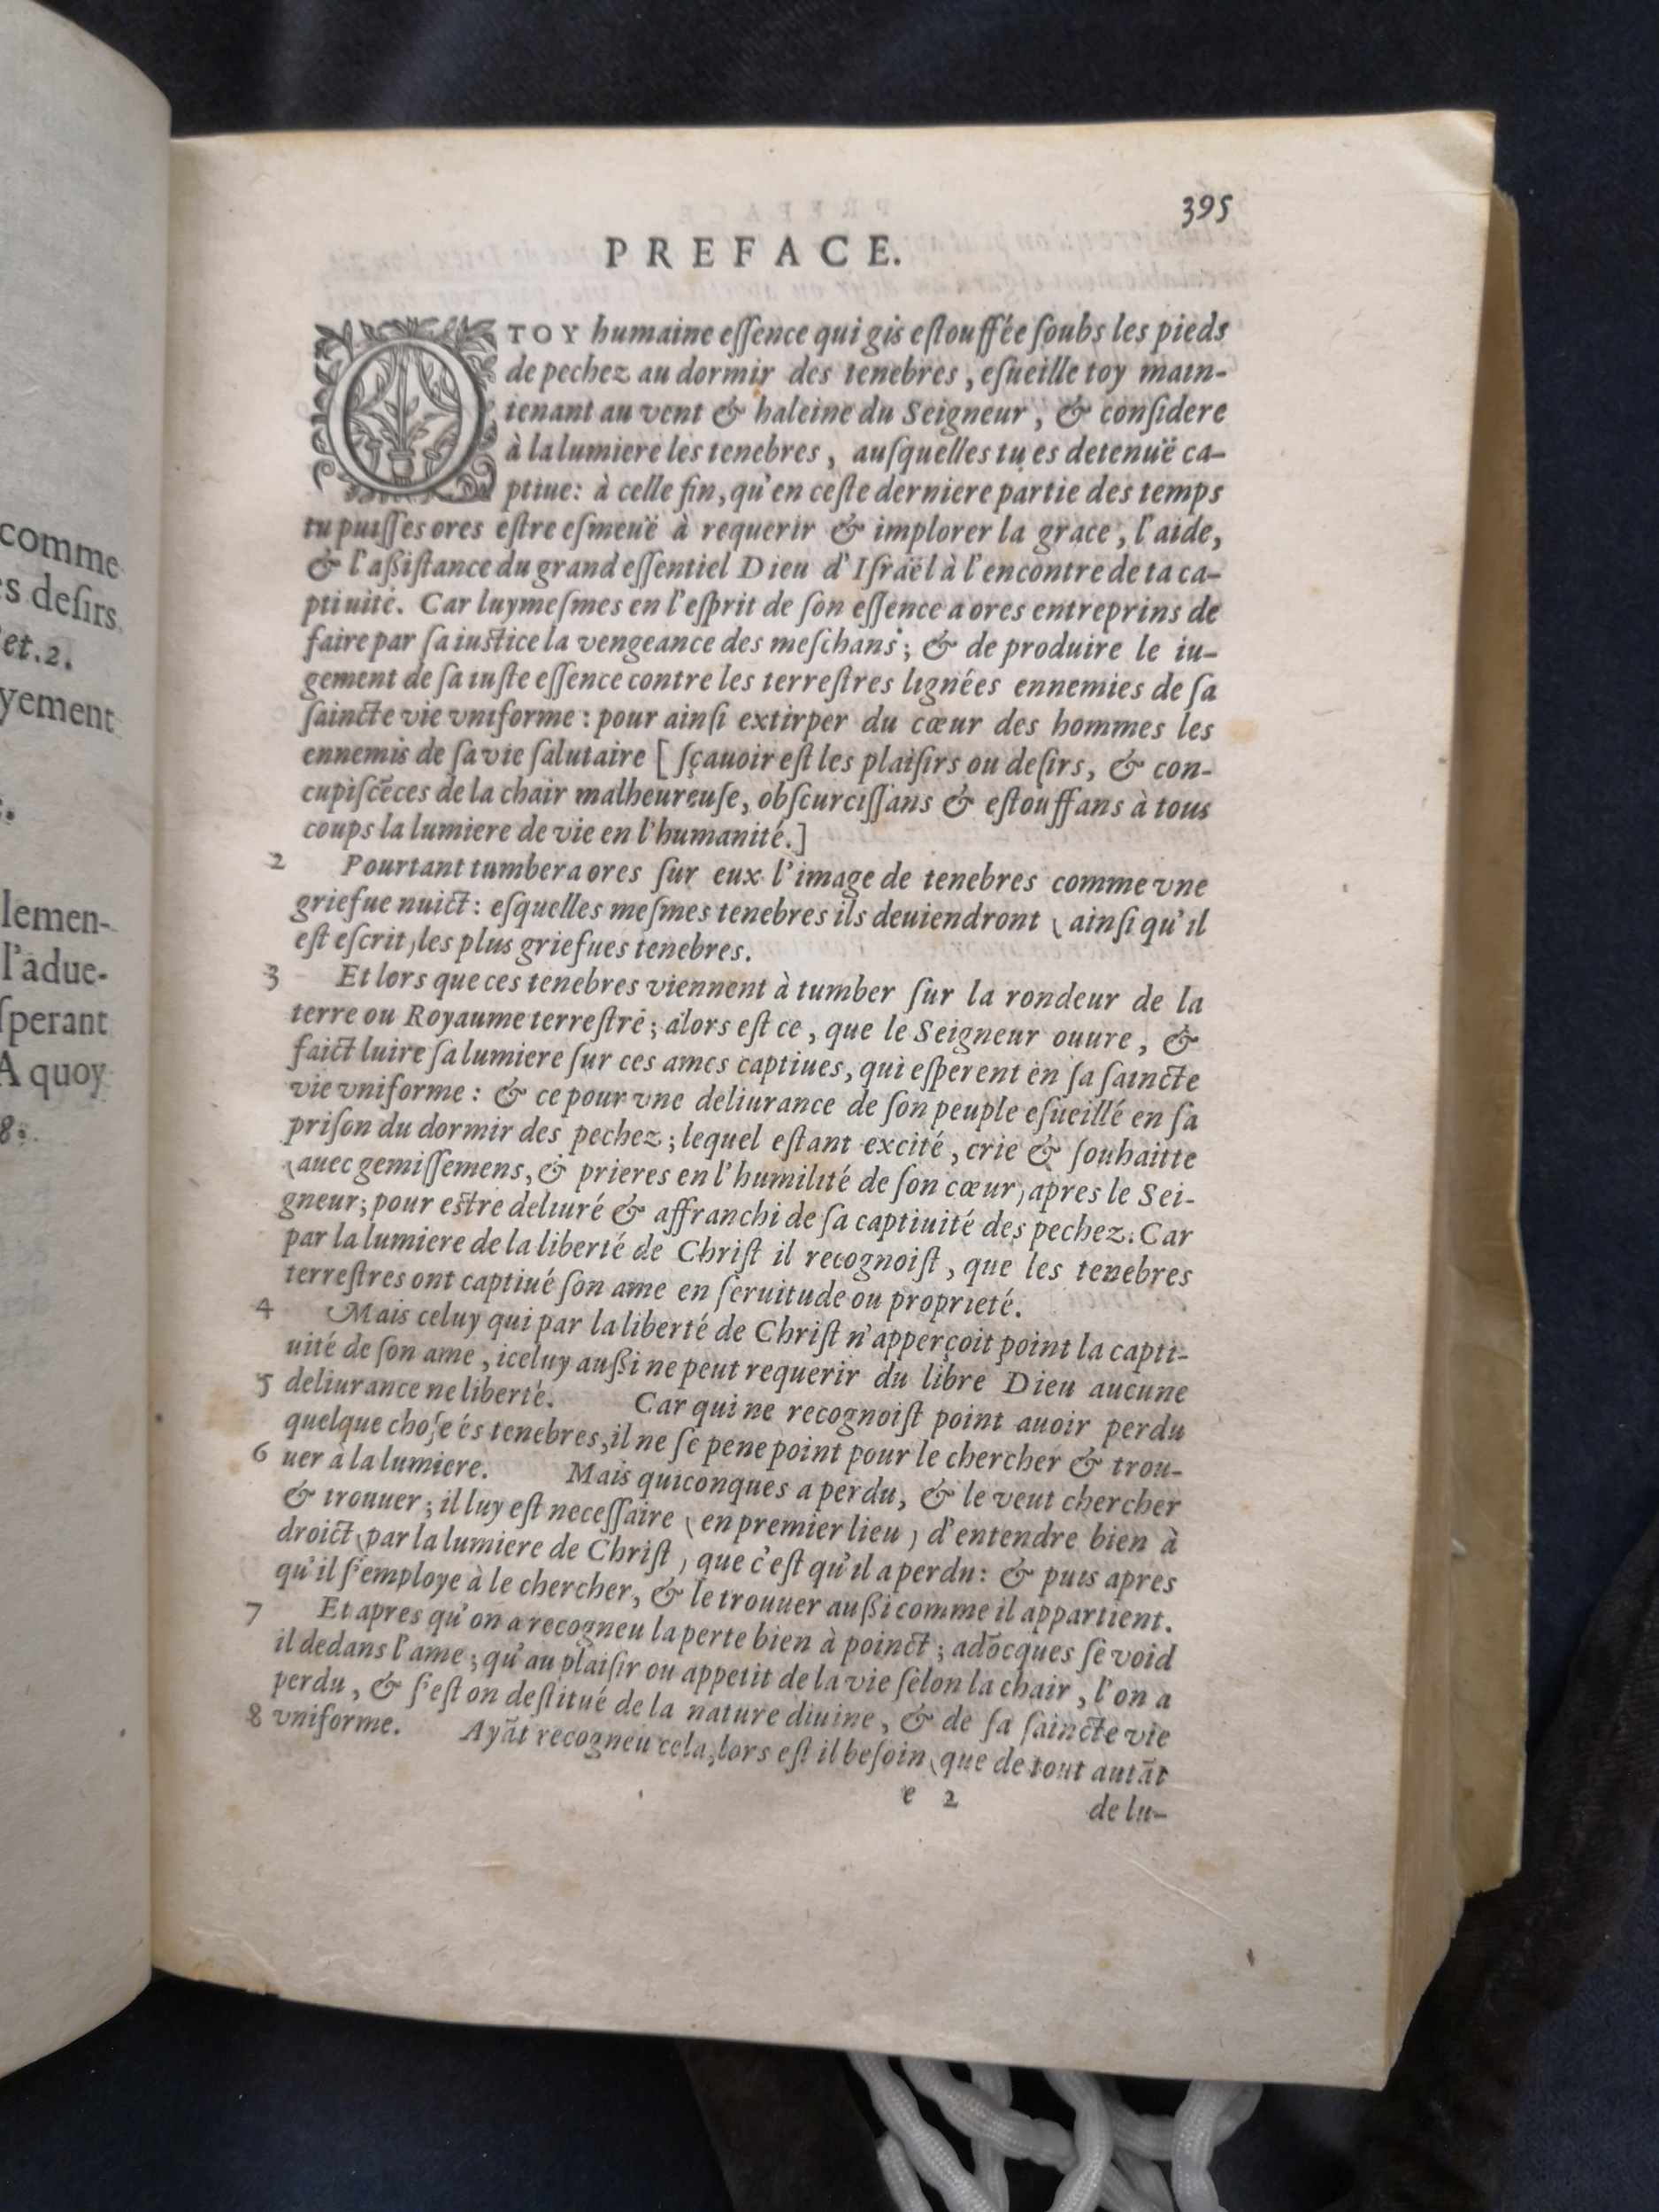 comme
s deſirs
et.2.
yement
lemen-
l'adue-
ſperant
A quoy
8.
395
PREFACE.
O TOY humaine eſſence qui gis eſtouffée ſoubs les pieds
de pechez au dormir des tenebres, eſueille toy main-
tenant au vent & haleine du Seigneur, & conſidere
à la lumiere les tenebres, auſquelles tu es detenuë ca-
ptiue: à celle fin, qu'en ceſte derniere partie des temps
tu puiſſes ores eſtre eſmeuë à requerir & implorer la grace, l'aide,
& l'aßiſtance du grand eſſentiel Dieu d'Iſraël à l'encontre de ta ca-
ptiuité. Car luymeſmes en l'eſprit de ſon eſſence a ores entreprins de
faire par ſa iuſtice la vengeance des meſchans; & de produire le iu-
gement de ſa iuſte eſſence contre les terreſtres lignées ennemies de ſa
ſaincte vie vniforme: pour ainſi extirper du cœur des hommes les
ennemis de ſa vie ſalutaire [ ſçauoir eſt les plaiſirs ou deſirs, & con-
cupiſcẽces de la chair malheureuſe, obſcurciſſans & eſtouffans à tous
coups la lumiere de vie en l'humanité.]
2 Pourtant tumbera ores ſur eux l'image de tenebres comme vne
griefue nuict: eſquelles meſmes tenebres ils deuiendront (ainſi qu'il
eſt eſcrit) les plus griefues tenebres.
3 Et lors que ces tenebres viennent à tumber ſur la rondeur de la
terre ou Royaume terreſtre; alors eſt ce, que le Seigneur ouure, &
faict luire ſa lumiere ſur ces ames captiues, qui eſperent en ſa ſaincte
vie vniforme: & ce pour vne deliurance de ſon peuple eſueillé en ſa
priſon du dormir des pechez; lequel eſtant excité, crie & ſouhaitte
(auec gemiſſemens, & prieres en l'humilité de ſon cœur) apres le Sei-
gneur; pour eſtre deliuré & affranchi de ſa captiuité des pechez. Car
par la lumiere de la liberté de Chriſt il recognoiſt, que les tenebres
terreſtres ont captiué ſon ame en ſeruitude ou proprieté.
4 Mais celuy qui par la liberté de Chriſt n'apperçoit point la capti-
uité de ſon ame, iceluy außi ne peut requerir du libre Dieu aucune
5 deliurance ne liberté. Car qui ne recognoiſt point auoir perdu
quelque choſe és tenebres, il ne ſe pene point pour le chercher & trou-
6 uer à la lumiere. Mais quiconques a perdu, & le veut chercher
& trouuer; il luy eſt neceſſaire (en premier lieu) d'entendre bien à
droict (par la lumiere de Chriſt) que c'eſt qu'il a perdu: & puis apres
qu'il ſ'employe à le chercher, & le trouuer außi comme il appartient.
7 Et apres qu'on a recogneu la perte bien à poinct; adõcques ſe void
il dedans l'ame; qu'au plaiſir ou appetit de la vie ſelon la chair, l'on a
perdu, & ſ'eſt on deſtitué de la nature diuine, & de ſa ſaincte vie
8 vniforme. Ayãt recogneu cela, lors eſt il beſoin (que de tout autãt
e 2
de lu-